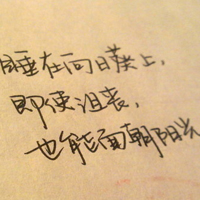 睡在向日葵上，
即使沮丧，
也能面朝阳光